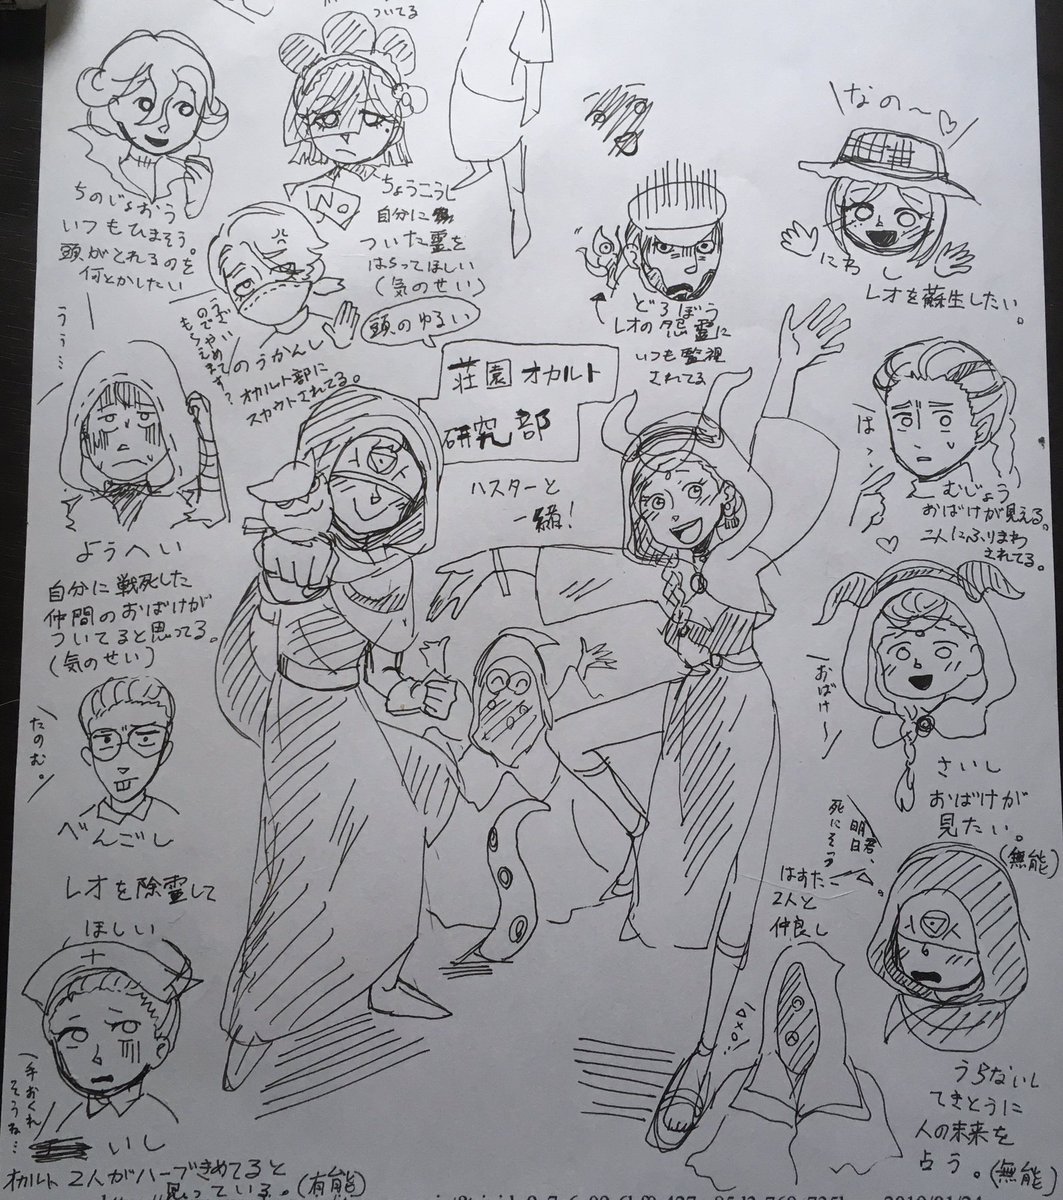 ついてる
ちのじょおう
いつもひまそう。
頭がとれるのを
何とかしたい
No
ちょうこうし
自分に
ついた霊を
はらってほしい
(気のせい)
どろぼう
レオの怨霊に
いつも監視
されてる
なの〜♡
にわし
レオを蘇生したい。
のうかんし
オカルト部に
スカウトされてる。
頭のゆるい
荘園オカルト
研究部
ハスターと
一緒!
うう…
ようへい
自分に戦死した
仲間のおばけが
ついてると思ってる。
(気のせい)
は…
むじょう
おばけが見える。
二人にふりまわ
されてる。
おばけ〜
さいし
おばけが
見たい。
(無能)
たのむ。
べんごし
レオを除霊して
ほしい
君、
明日
死にそう
はすたー
2人と
仲良し
うらないし
てきとうに
人の未来を
占う。(無能)
手おくれ
そうね…
いし
オカルト2人がハーブきめてると
思っている。(有能)